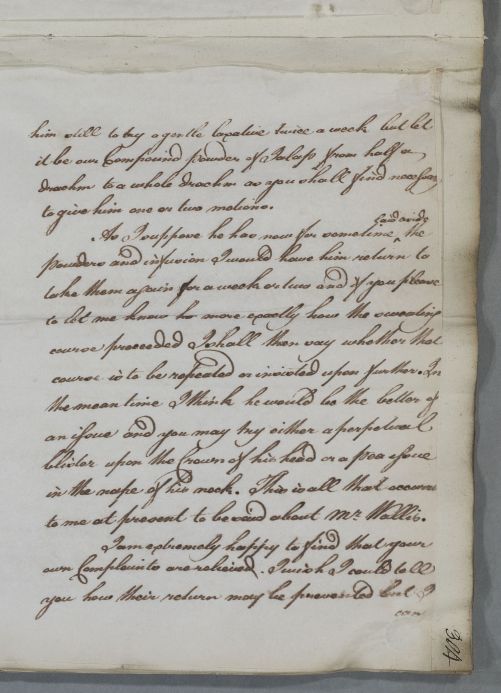 him still to try a gentle laxative twice a week but let
it be our Compound powder of Jalap from half a
drachm to a whole drachm as you shall find necessary
to give him one or two motions.
As I suppose he has now for sometime laid aside the
powders and infusion I would have him return to
take them again for a week or two and if you please
to let me know more exactly how the sweating
course proceeded I shall then say whether that
course is to be repeated or insisted upon further. In
the mean time I think he would be the better of
an issue and you may try either a perpetual
blister upon the Crown of his head or a pea issue
in the nape of his neck. This is all that occurrs
to me at present to be said about Mr. Wallis.
I am extremely happy to find that your
own Complaints are relieved. I wish I could tell
you how their return may be prevented but I
can
304